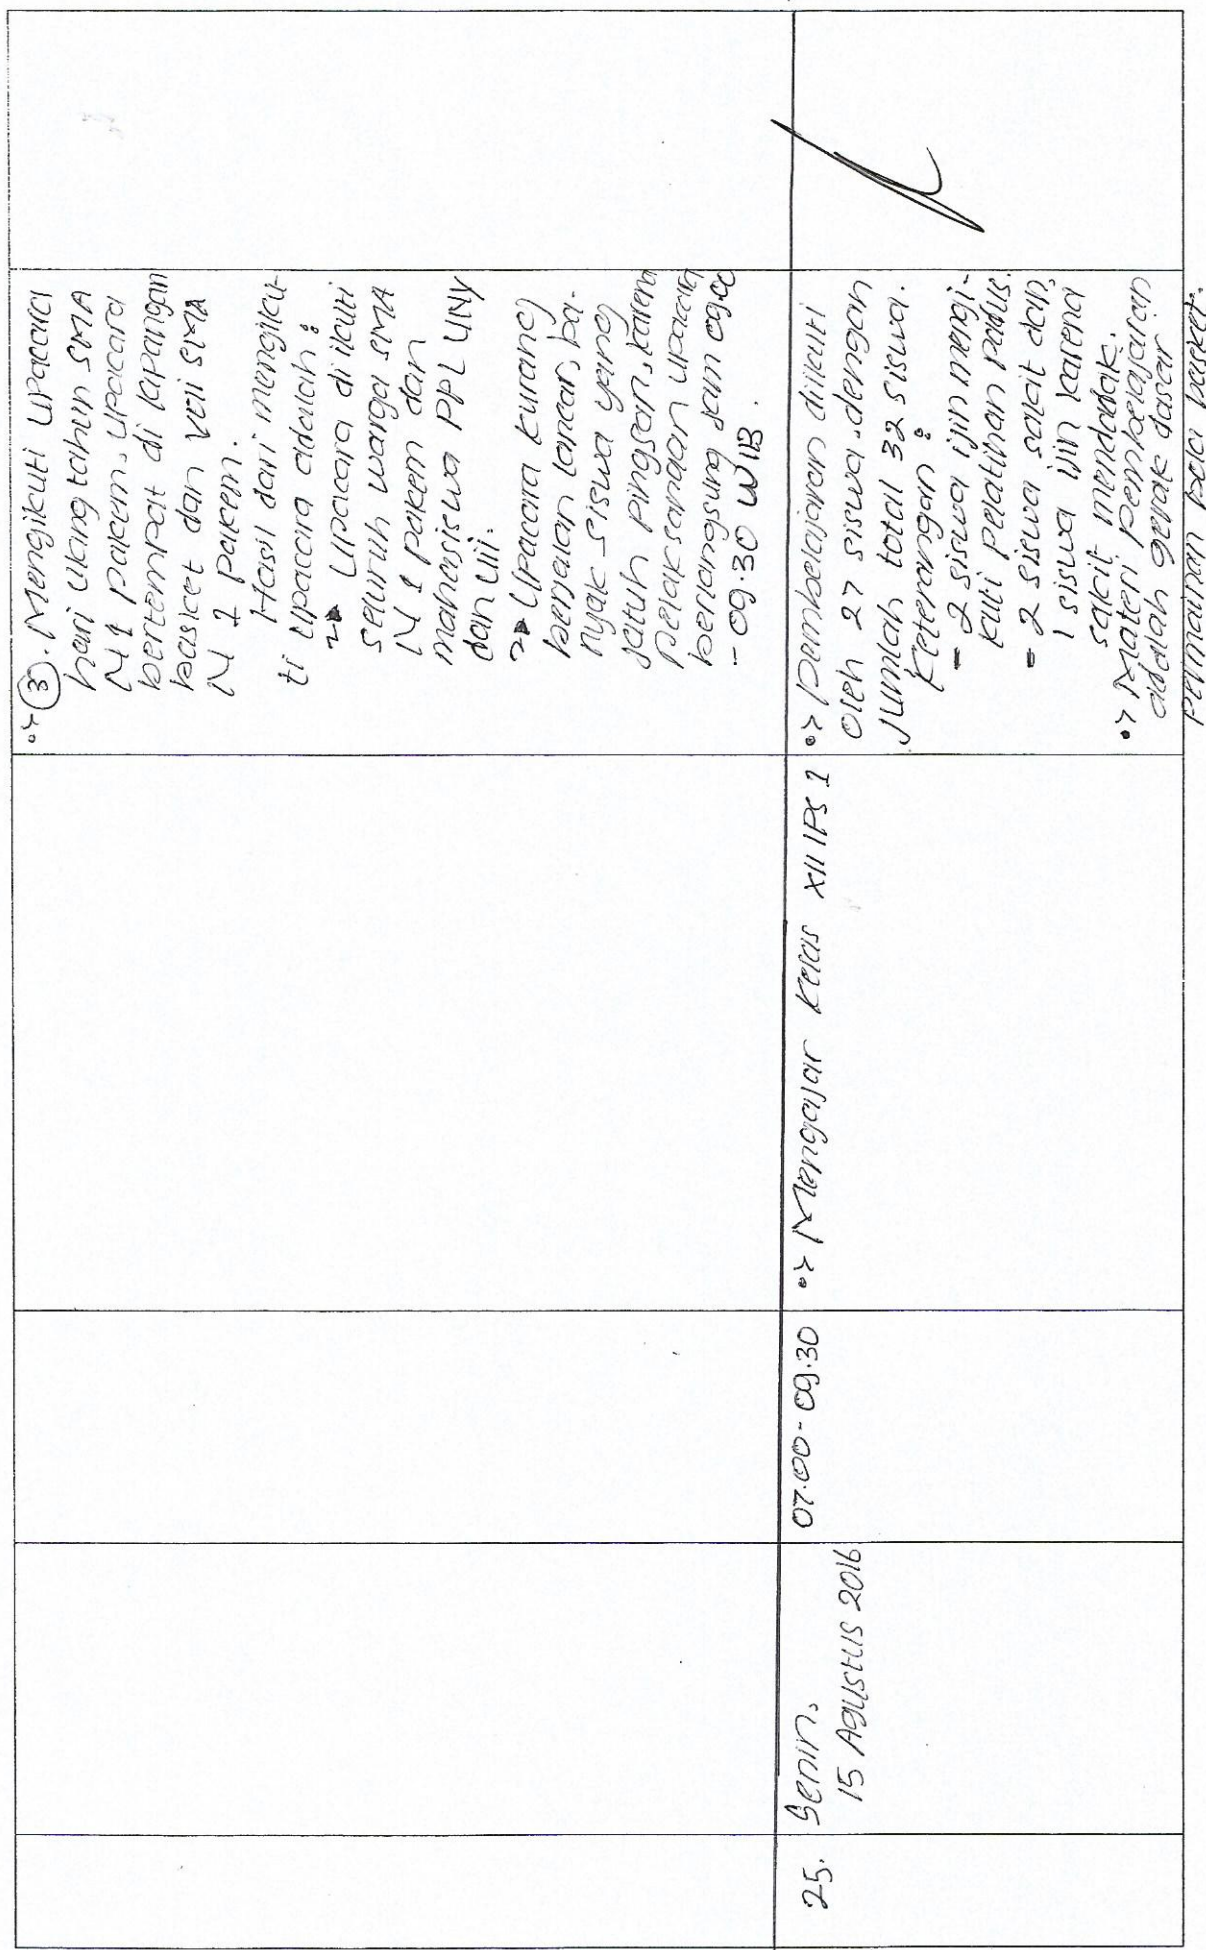 •> (3). Mengikuti upacara
hari ulang tahun SMA
N 1 pakem, upacara
bertempat di lapangan
basket dan voli SMA
N 1 pakem.
Hasil dari mengiku-
ti upacara adalah :
Upacara di ikuti
seluruh warga SMA
N 1 pakem dan
mahasiswa PPL UNY
dan UII.
Upacara kurang
berjalan lancar, ba-
nyak siswa yang
jatuh pingsan, karena
pelaksanaan upacara
berlangsung jam 09.00
- 09.30 WIB.
25.
Senin,
15 Agustus 2016
07.00 - 09.30
•> Mengajar kelas XII IPS 1
•> pembelajaran diikuti
oleh 27 siswa, dengan
jumlah total 32 siswa.
Keterangan :
- 2 siswa ijin mengi-
kuti pelatihan padus.
- 2 siswa sakit dan,
1 siswa ijin karena
sakit mendadak.
•> Materi pembelajaran
adalah gerak dasar
permainan bola basket.